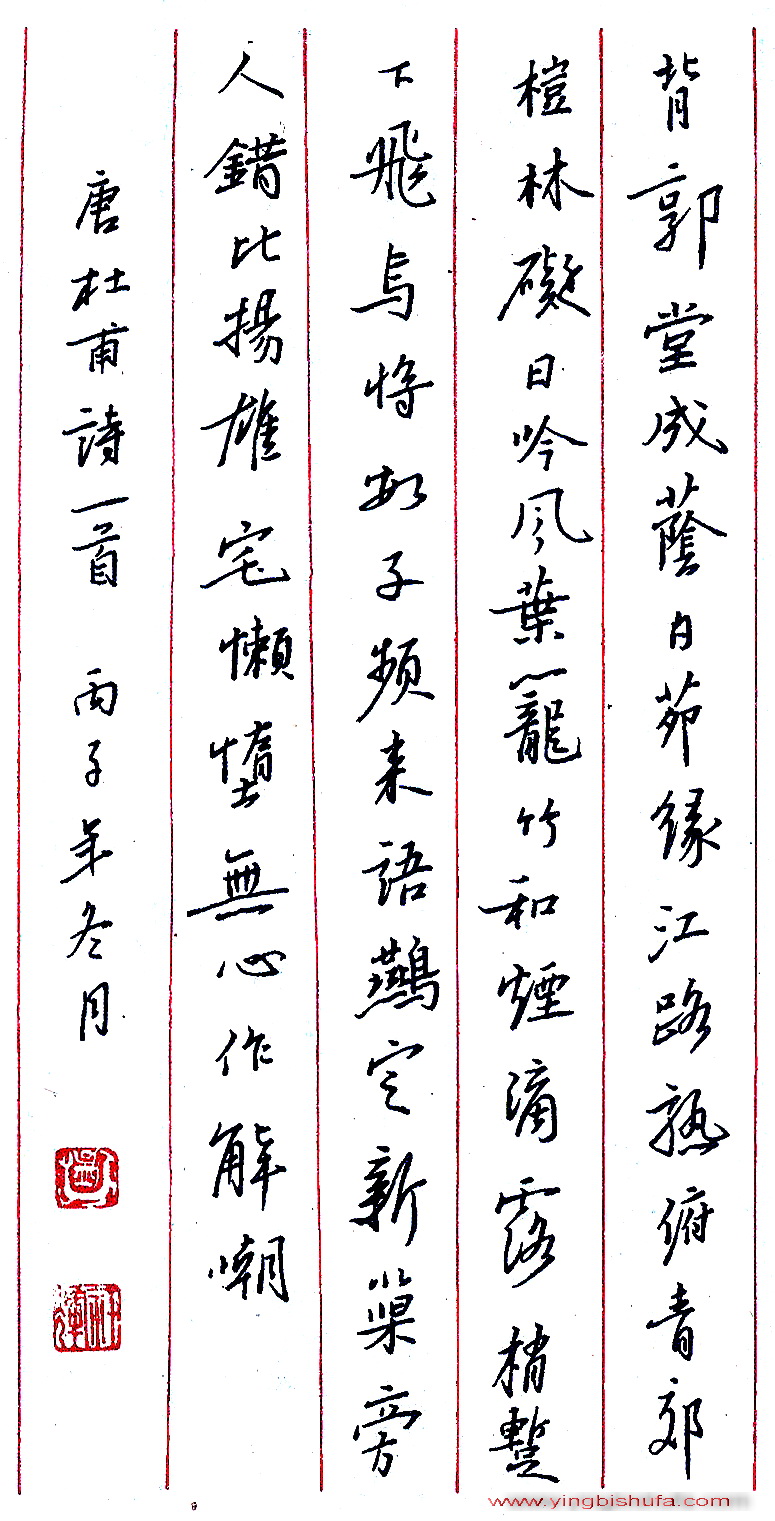 背郭堂成蔭白茆緣江路熟俯青郊
榿林礙日吟風葉籠竹和煙滴露梢蹔
下飛烏將數子頻來語鷰定新巢旁
人錯比揚雄宅懶墮無心作解嘲
唐杜甫詩一首 丙子年冬月
www.yingbishufa.com